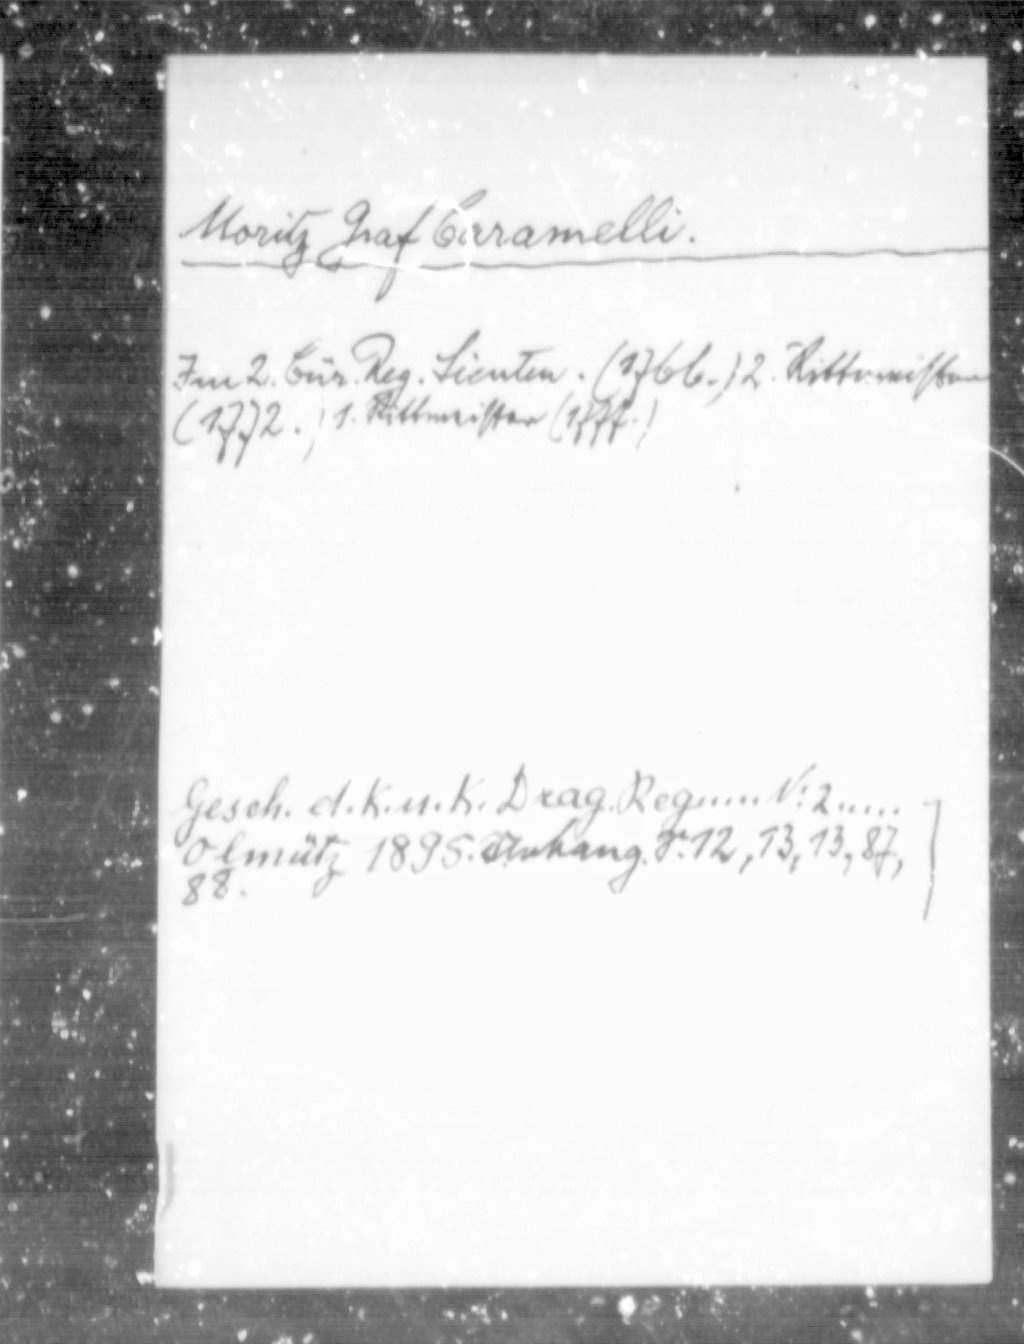 Moritz Graf Caramelli.
Im 2. Cür. Reg. Lieuten. (1766.) 2. Rittmeister
(1772.) 1. Rittmeister (1777.)
Gesch. d. K. u. K. Drag. Reg..... N: 2.....
Olmütz 1895. Anhang. S. 12, 13, 13, 87,
88.